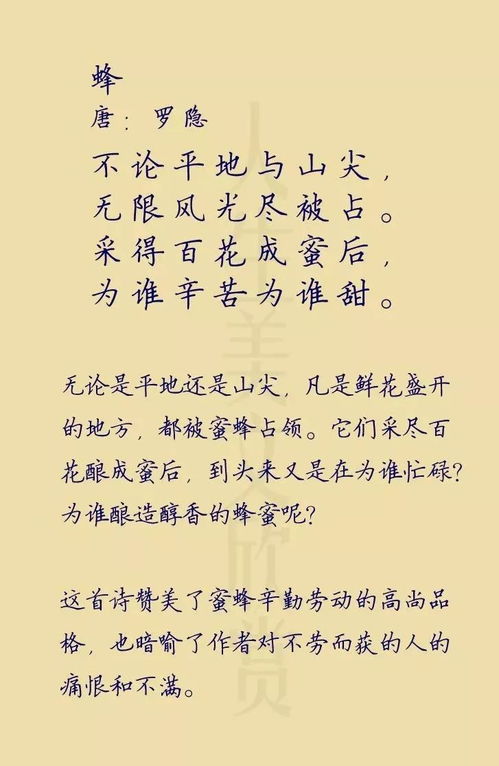 蜂
唐：罗隐
不论平地与山尖，
无限风光尽被占。
采得百花成蜜后，
为谁辛苦为谁甜。
无论是平地还是山尖，凡是鲜花盛开
的地方，都被蜜蜂占领。它们采尽百
花酿成蜜后，到头来又是在为谁忙碌？
为谁酿造醇香的蜂蜜呢？
这首诗赞美了蜜蜂辛勤劳动的高尚品
格，也暗喻了作者对不劳而获的人的
痛恨和不满。